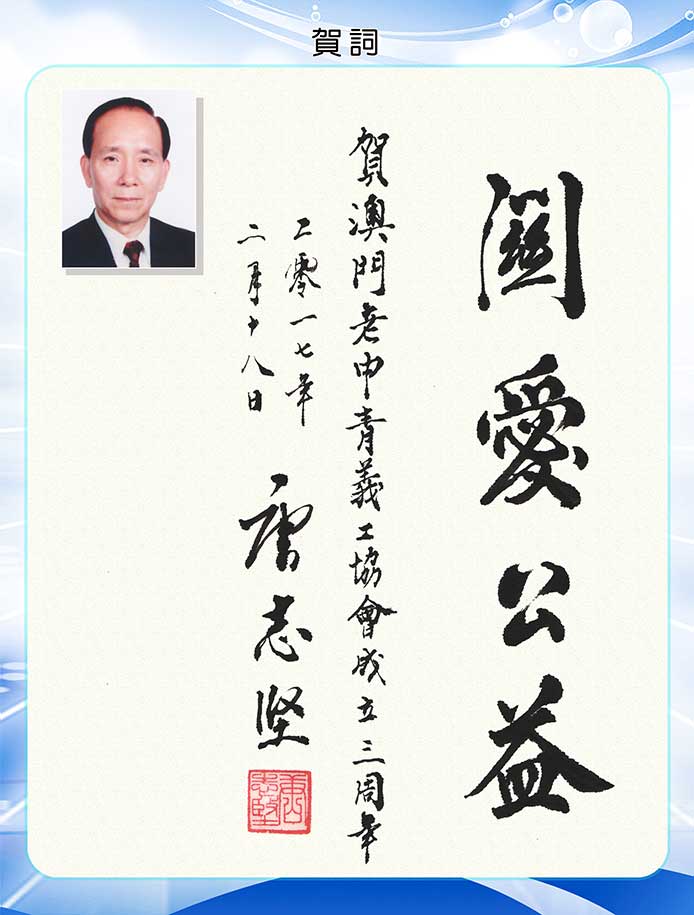 賀詞
關愛公益
賀澳門老中青義工協會成立三周年
二零一七年
二月十八日
唐志堅
唐志堅